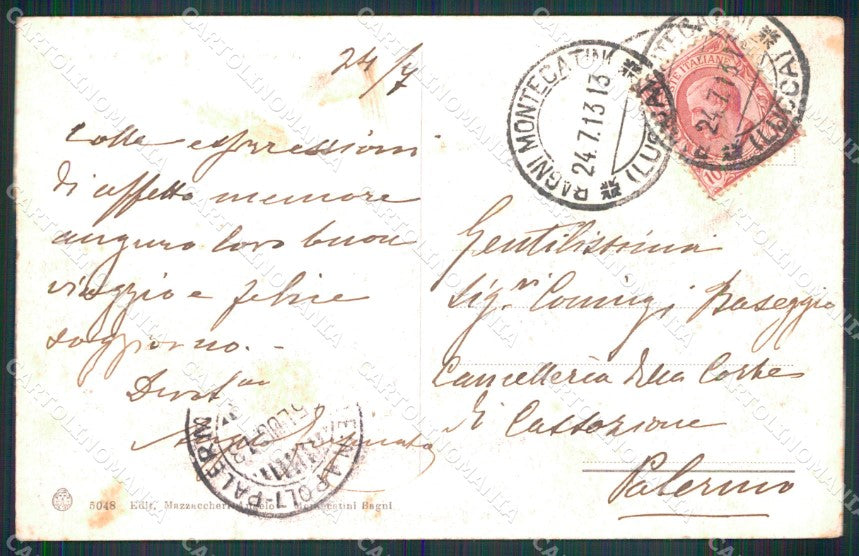 24/7
colle espressioni
di affetto memore
auguro loro buon
viaggio e felice
soggiorno. -
Devot
BAGNI MONTECATINI (LUCCA)
24.7.13 13
24.7.13
POSTE ITALIANE
10
Gentilissimi
Sigri Coniugi Baseggio
Cancelleria della Corte
di Cassazione
Palermo
NAPOLI-PALERMO
5048 Edit. Mazzaccheri Montecatini Bagni
CARTOLINOMANIA